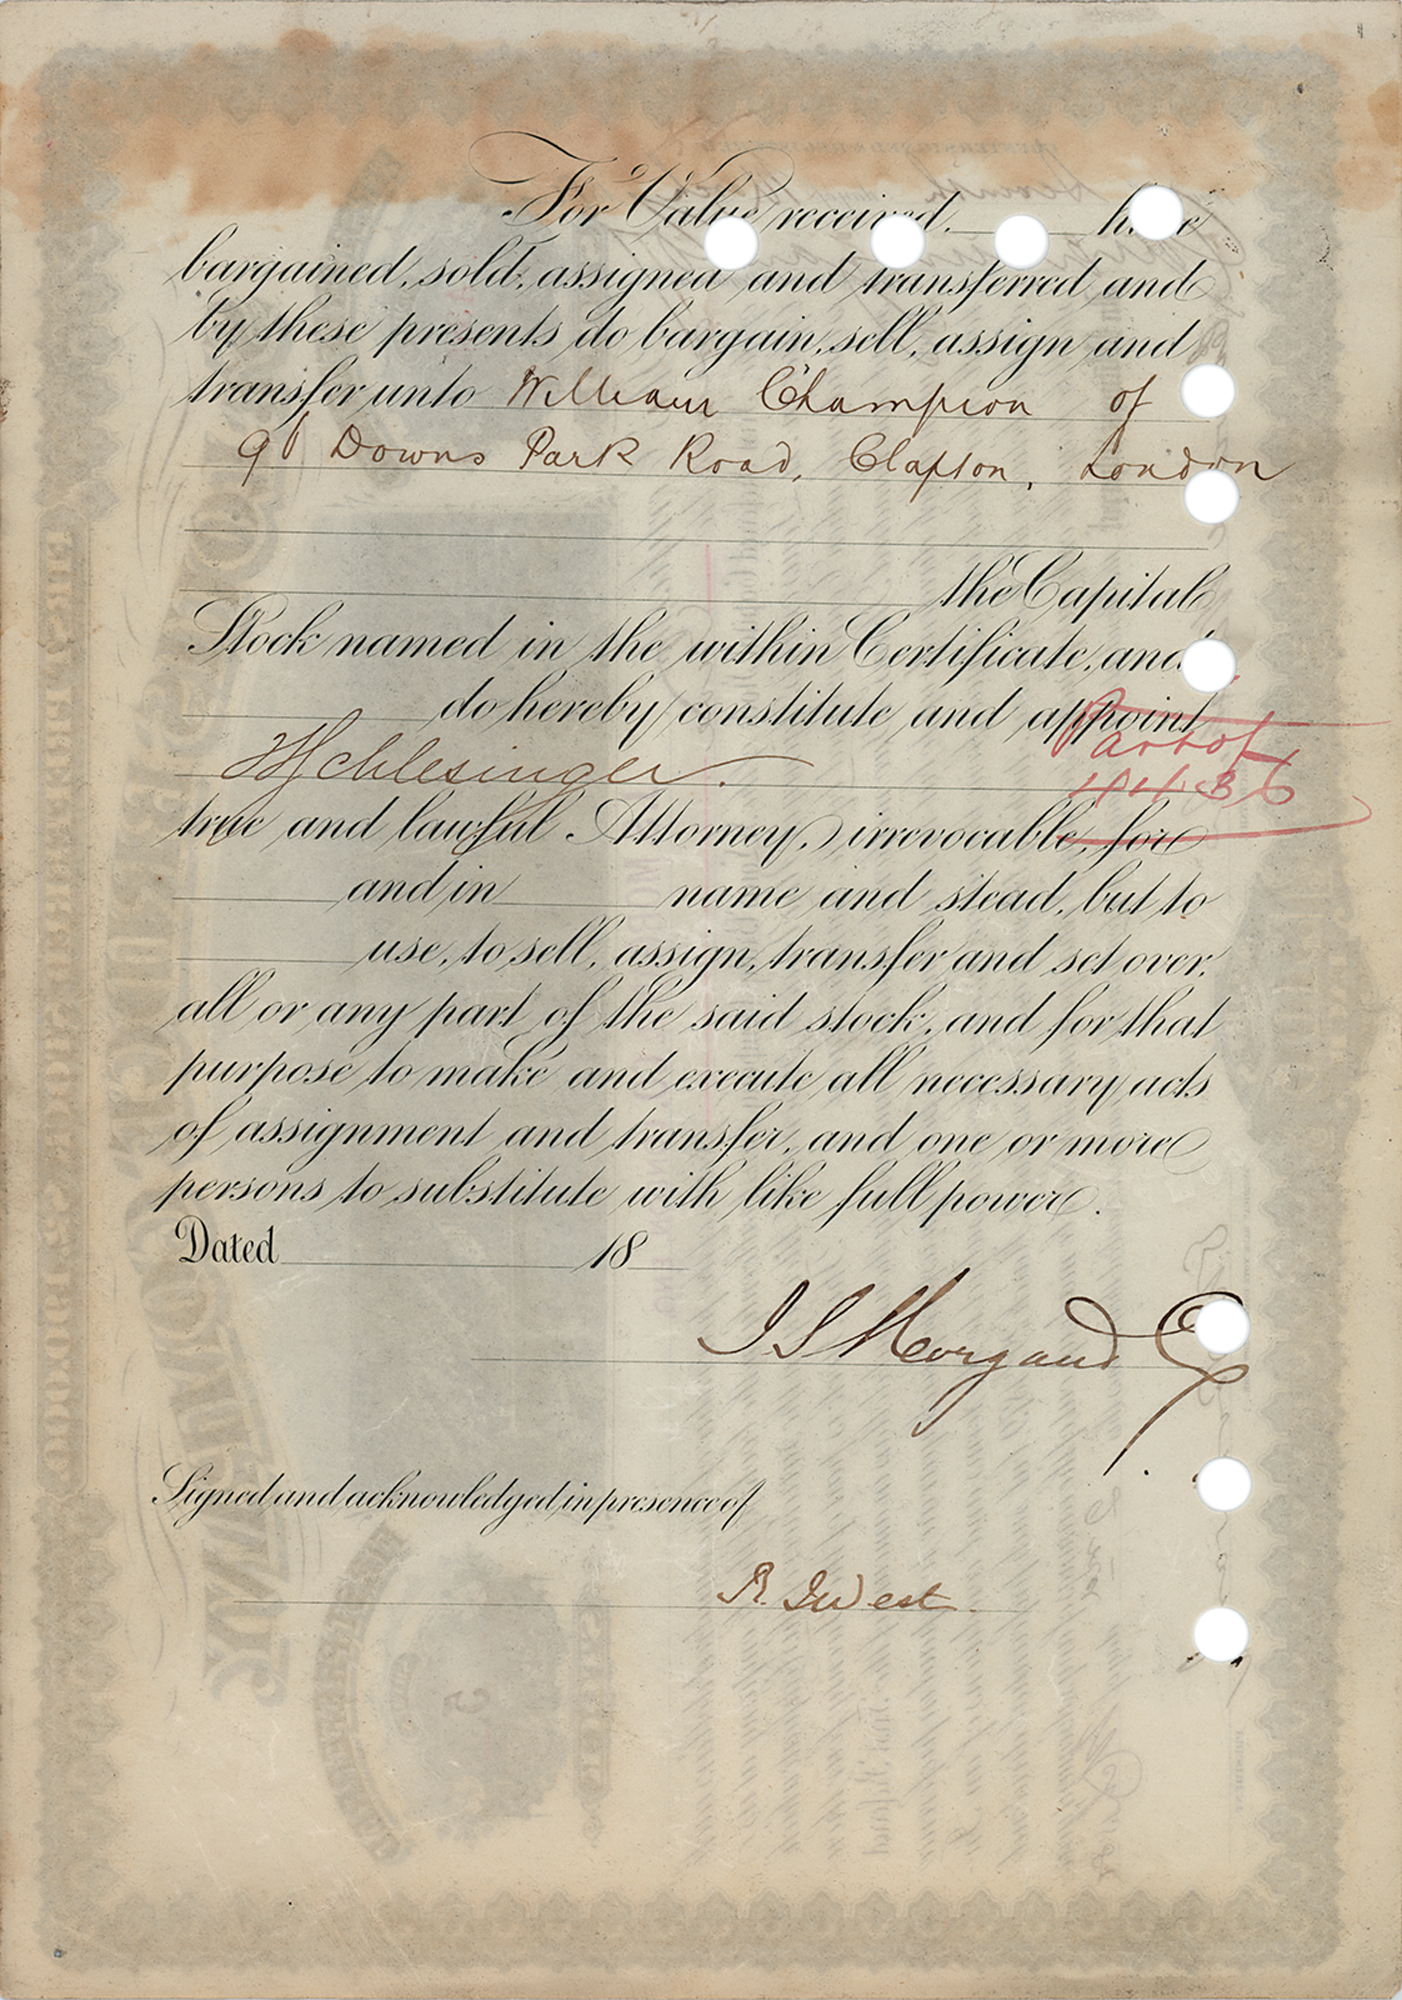 For Value received, have
bargained, sold, assigned and transferred and
by these presents do bargain, sell, assign and
transfer unto William Champion of
Downs Park Road, Clapton, London
the Capital
Stock named in the within Certificate, and
do hereby constitute and appoint
Schlesinger.
Part of
44386
true and lawful Attorney, irrevocable, for
and in name and stead, but to
use, to sell, assign, transfer and set over,
all or any part of the said stock, and for that
purpose to make and execute all necessary acts
of assignment and transfer, and one or more
persons to substitute with like full power.
Dated 18
J S Morgan and Co
Signed and acknowledged in presence of
R. J West